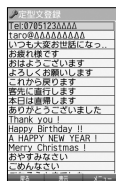 定型文登録
Tel:0705123ΔΔΔΔ
taro@ΔΔΔΔΔΔΔΔΔ
いつも大変お世話になっ..
お疲れ様です
おはようございます
よろしくお願いします
これから戻ります
客先に直行します
本日は直帰します
ありがとうございました
Thank you !
Happy Birthday !!
A HAPPY NEW YEAR !
Merry Christmas !
おやすみなさい
ごめんなさい
メニュー